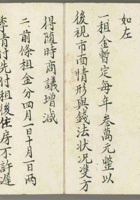 如左
一租金暫定每年叁萬元整以
後視市面情形與錢法狀况雙方
得隨時商議增減
二前條租金分四月一日十月一日兩